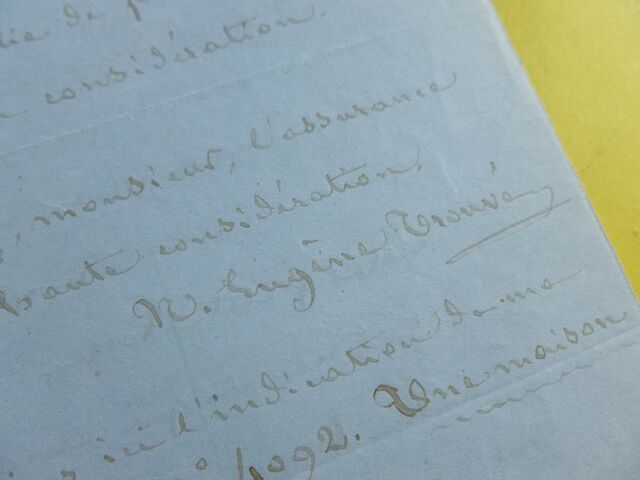 de
considération.
monsieur, l'assurance
haute considération,
N. Eugène Trouvé
ici l'indication de ma
1092. Une maison